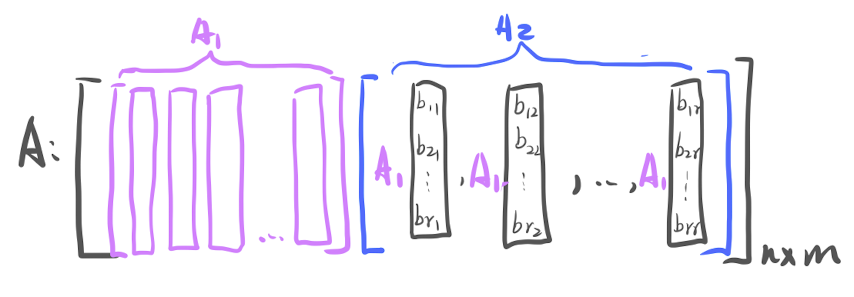 A₁ A₂
A: ... A₁ b₁₁ b₂₁ ⋮ bᵣ₁ , A₁ b₁₂ b₂₂ ⋮ bᵣ₂ , ..., A₁ b₁ᵣ b₂ᵣ ⋮ bᵣᵣ n×m